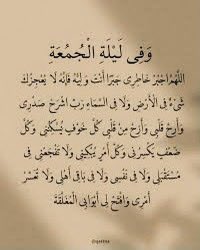 وَفِي لَيْلَةِ الْجُمُعَةِ
اللَّهُمَّ اجْبُرْ خَاطِرِي جَبْرًا أَنْتَ وَلِيُّهُ فَإِنَّهُ لَا يُعْجِزُكَ
شَيْءٌ فِي الْأَرْضِ وَلَا فِي السَّمَاءِ رَبِّ اشْرَحْ صَدْرِي
وَأَرِحْ قَلْبِي وَأَزِحْ مِنْ قَلْبِي كُلَّ خَوْفٍ يَسْكُنُنِي وَكُلَّ
ضَعْفٍ يَكْسِرُنِي وَكُلَّ أَمْرٍ يُبْكِينِي وَلَا تَفْجَعْنِي فِي
مُسْتَقْبَلِي وَلَا فِي نَفْسِي وَلَا فِي بَاقِي أَهْلِي وَلَا تُعَسِّرْ
أَمْرِي وَافْتَحْ لِي أَبْوَابِي الْمُغْلَقَةَ